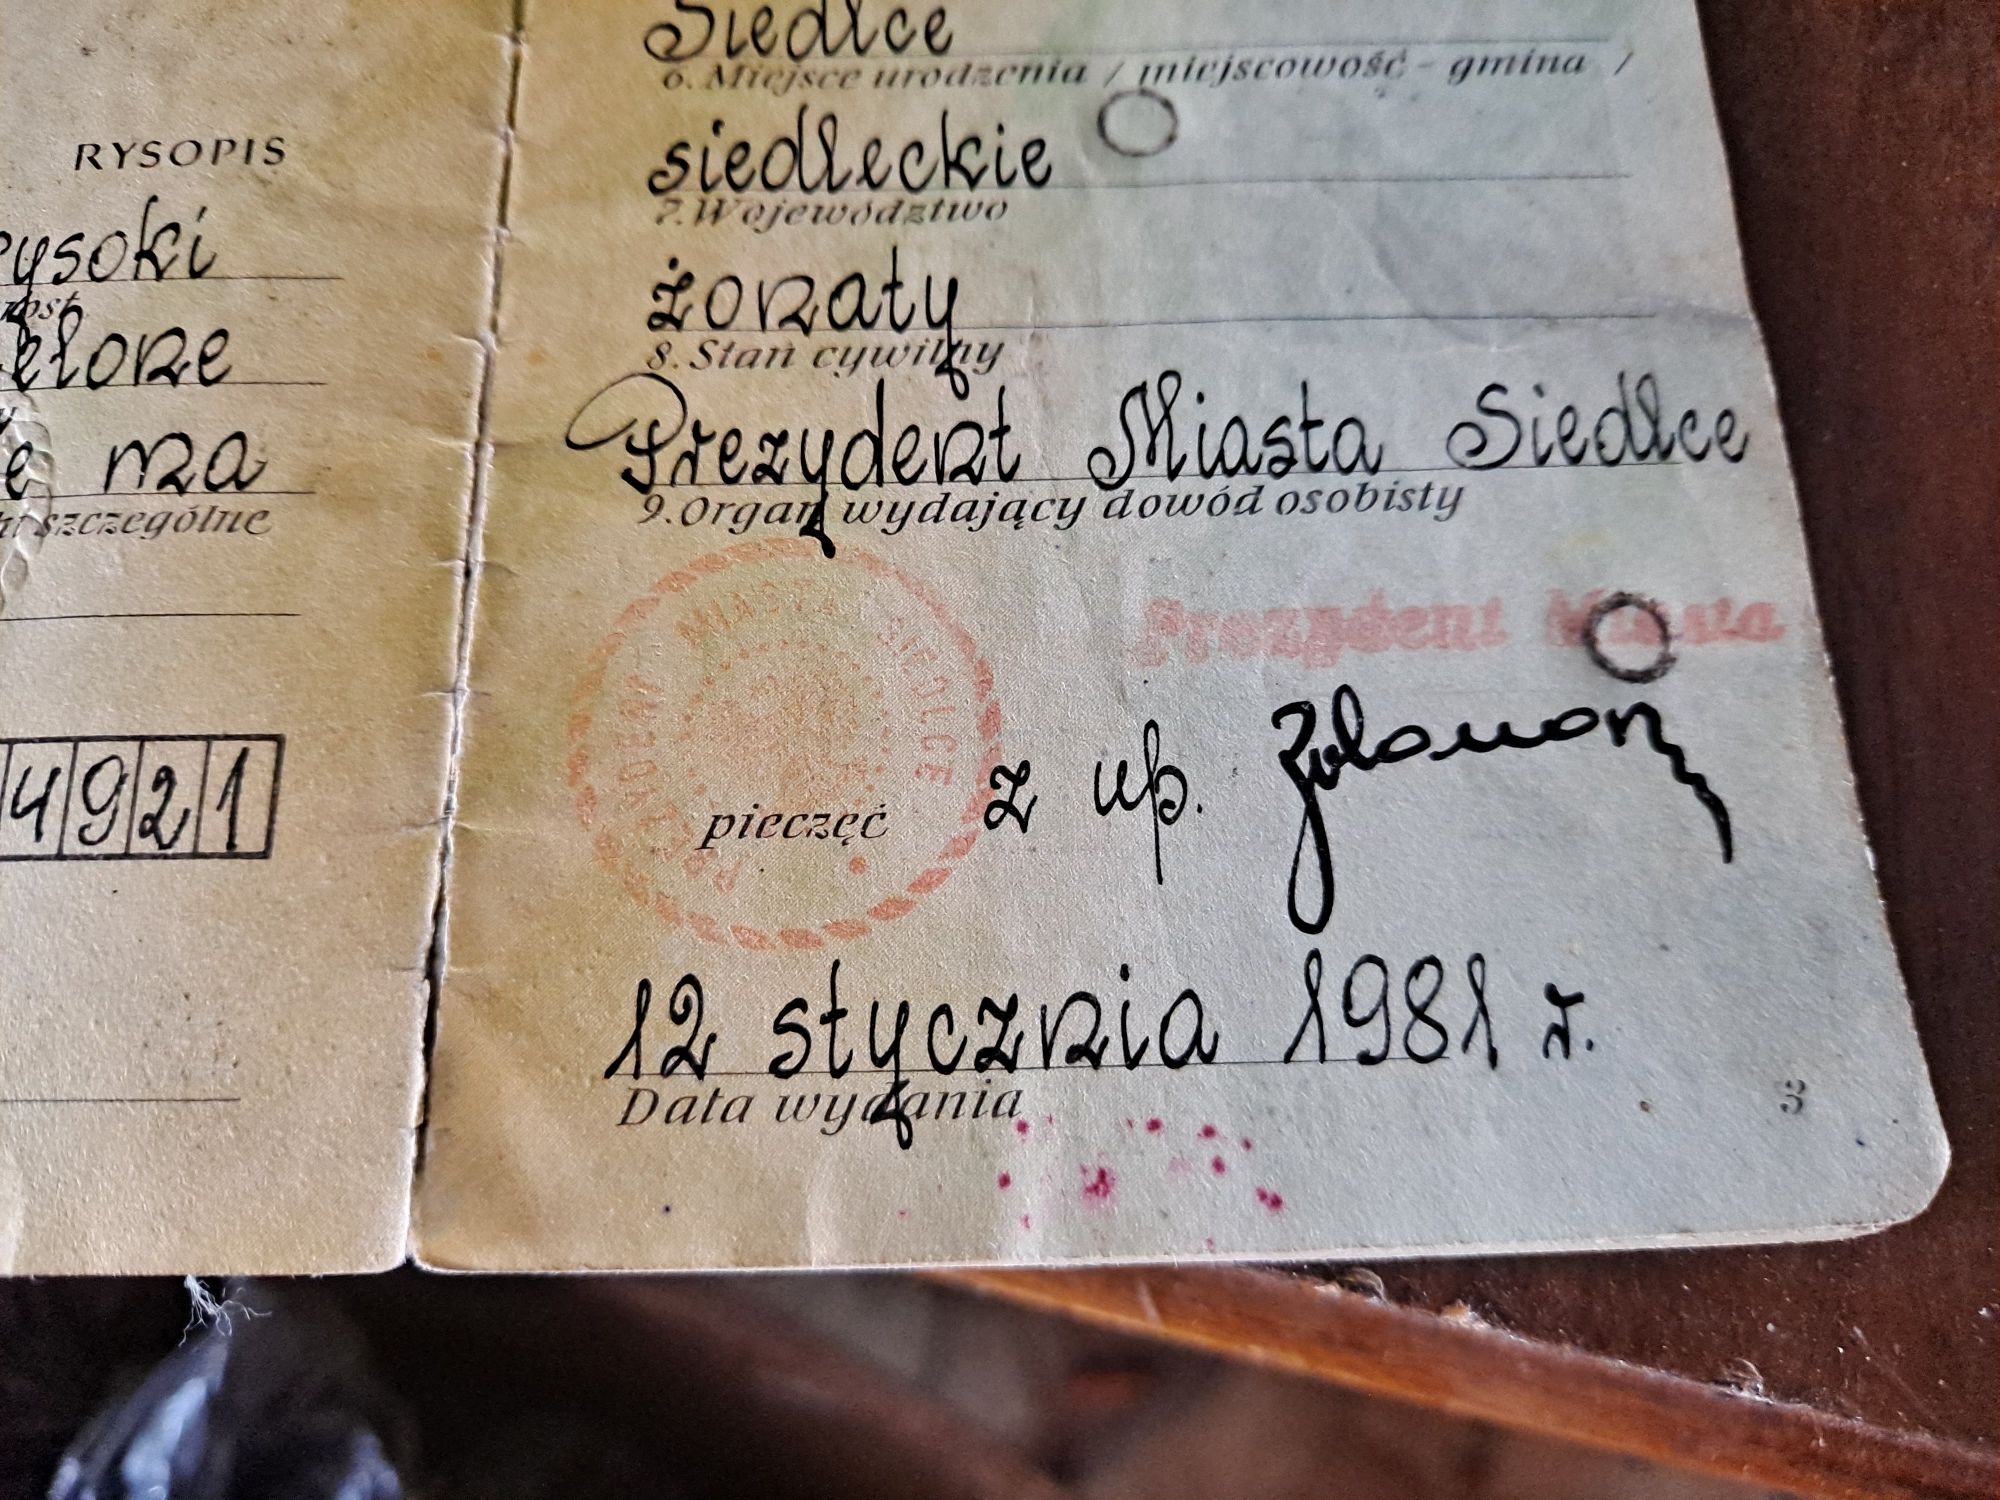 RYSOPIS
ysoki
rost
elone
e ma
szczególne
4921
Siedlce
6. Miejsce urodzenia / miejscowość - gmina /
siedleckie
7. Województwo
żonaty
8. Stan cywilny
Prezydent Miasta Siedlce
9. Organ wydający dowód osobisty
PREZYDENT MIASTA SIEDLCE
Prezydent Miasta
pieczęć
z up.
12 stycznia 1981 r.
Data wydania
3